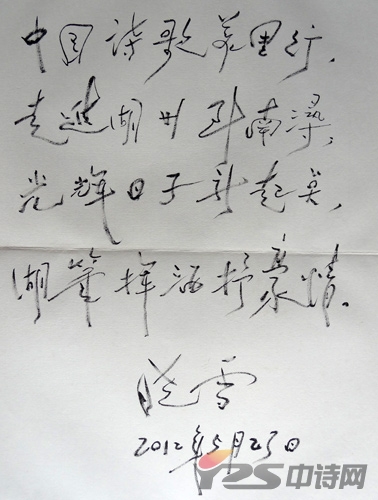 中国诗歌萬里行，
走進湖州到南浔，
光辉日子新起奌，
湖筆挥洒抒豪情。
晓雪
2012年5月23日
中诗网